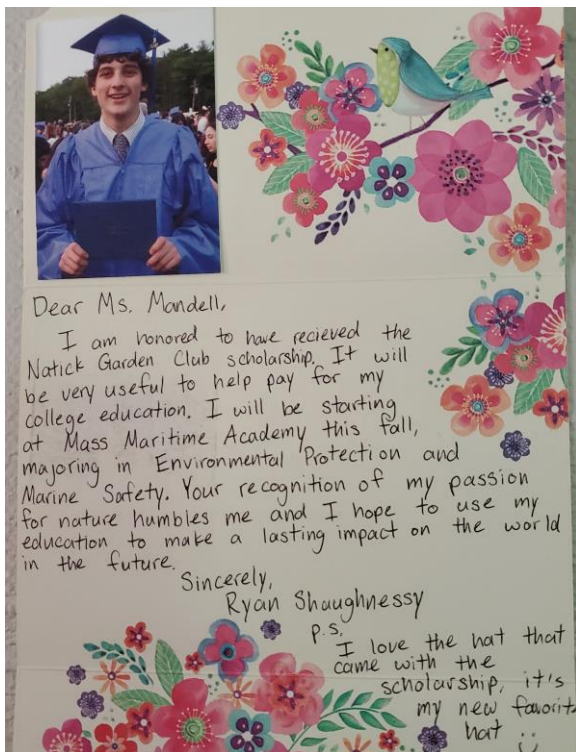 Dear Ms. Mandell,
I am honored to have recieved the
Natick Garden Club scholarship. It will
be very useful to help pay for my
college education. I will be starting
at Mass Maritime Academy this fall,
majoring in Environmental Protection and
Marine Safety. Your recognition of my passion
for nature humbles me and I hope to use my
education to make a lasting impact on the world
in the future.
Sincerely,
Ryan Shaughnessy
p.s.
I love the hat that
came with the
scholarship, it's
my new favorite
hat :)